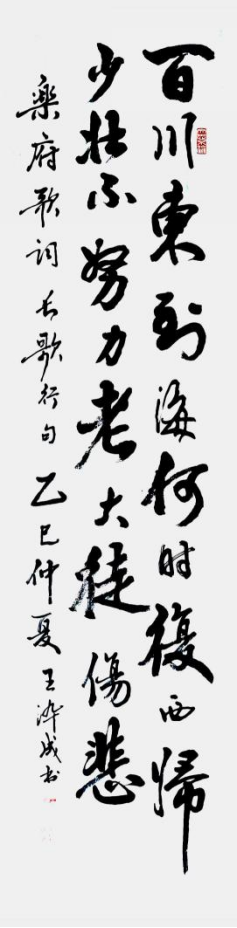 百川東到海何时復西歸
少壮不努力老大徒傷悲
樂府歌词长歌行句乙巳仲夏王海成书